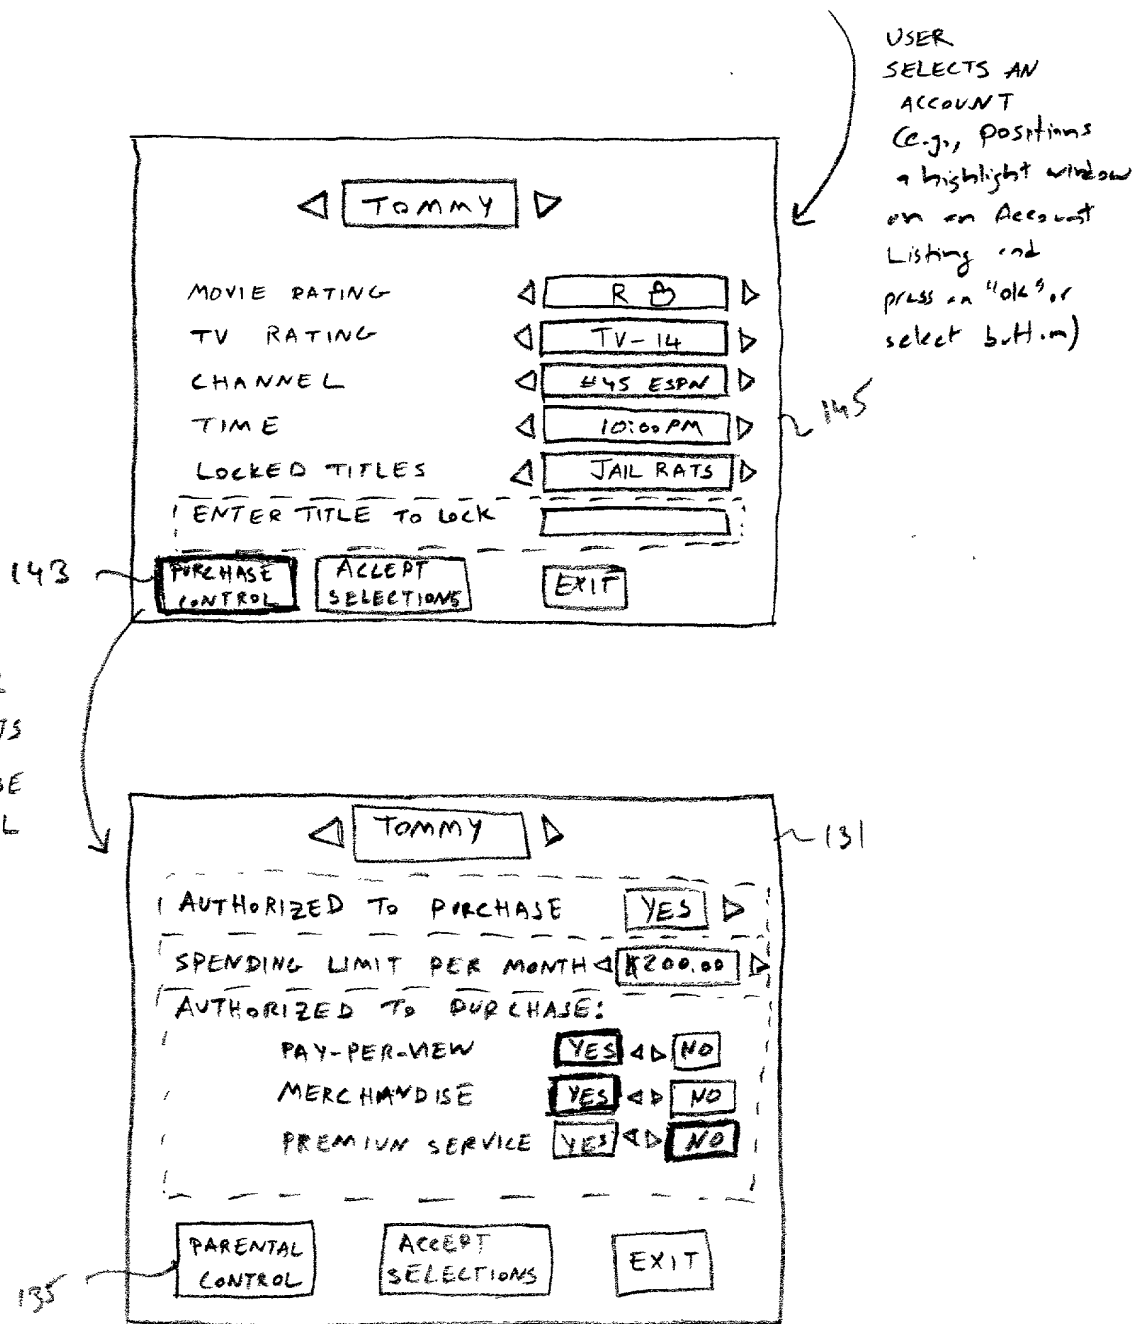 USER
SELECTS AN
ACCOUNT
(e.g., positions
a highlight window
on an Account
Listing and
press an "ok" or
select button)
TOMMY
MOVIE RATING R
TV RATING TV-14
CHANNEL #45 ESPN
TIME 10:00 PM
LOCKED TITLES JAIL RATS
145
ENTER TITLE TO LOCK
143
PURCHASE
CONTROL
ACCEPT
SELECTIONS
EXIT
TOMMY
131
AUTHORIZED TO PURCHASE YES
SPENDING LIMIT PER MONTH $200.00
AUTHORIZED TO PURCHASE:
PAY-PER-VIEW YES NO
MERCHANDISE YES NO
PREMIUM SERVICE YES NO
PARENTAL
CONTROL
ACCEPT
SELECTIONS
EXIT
135